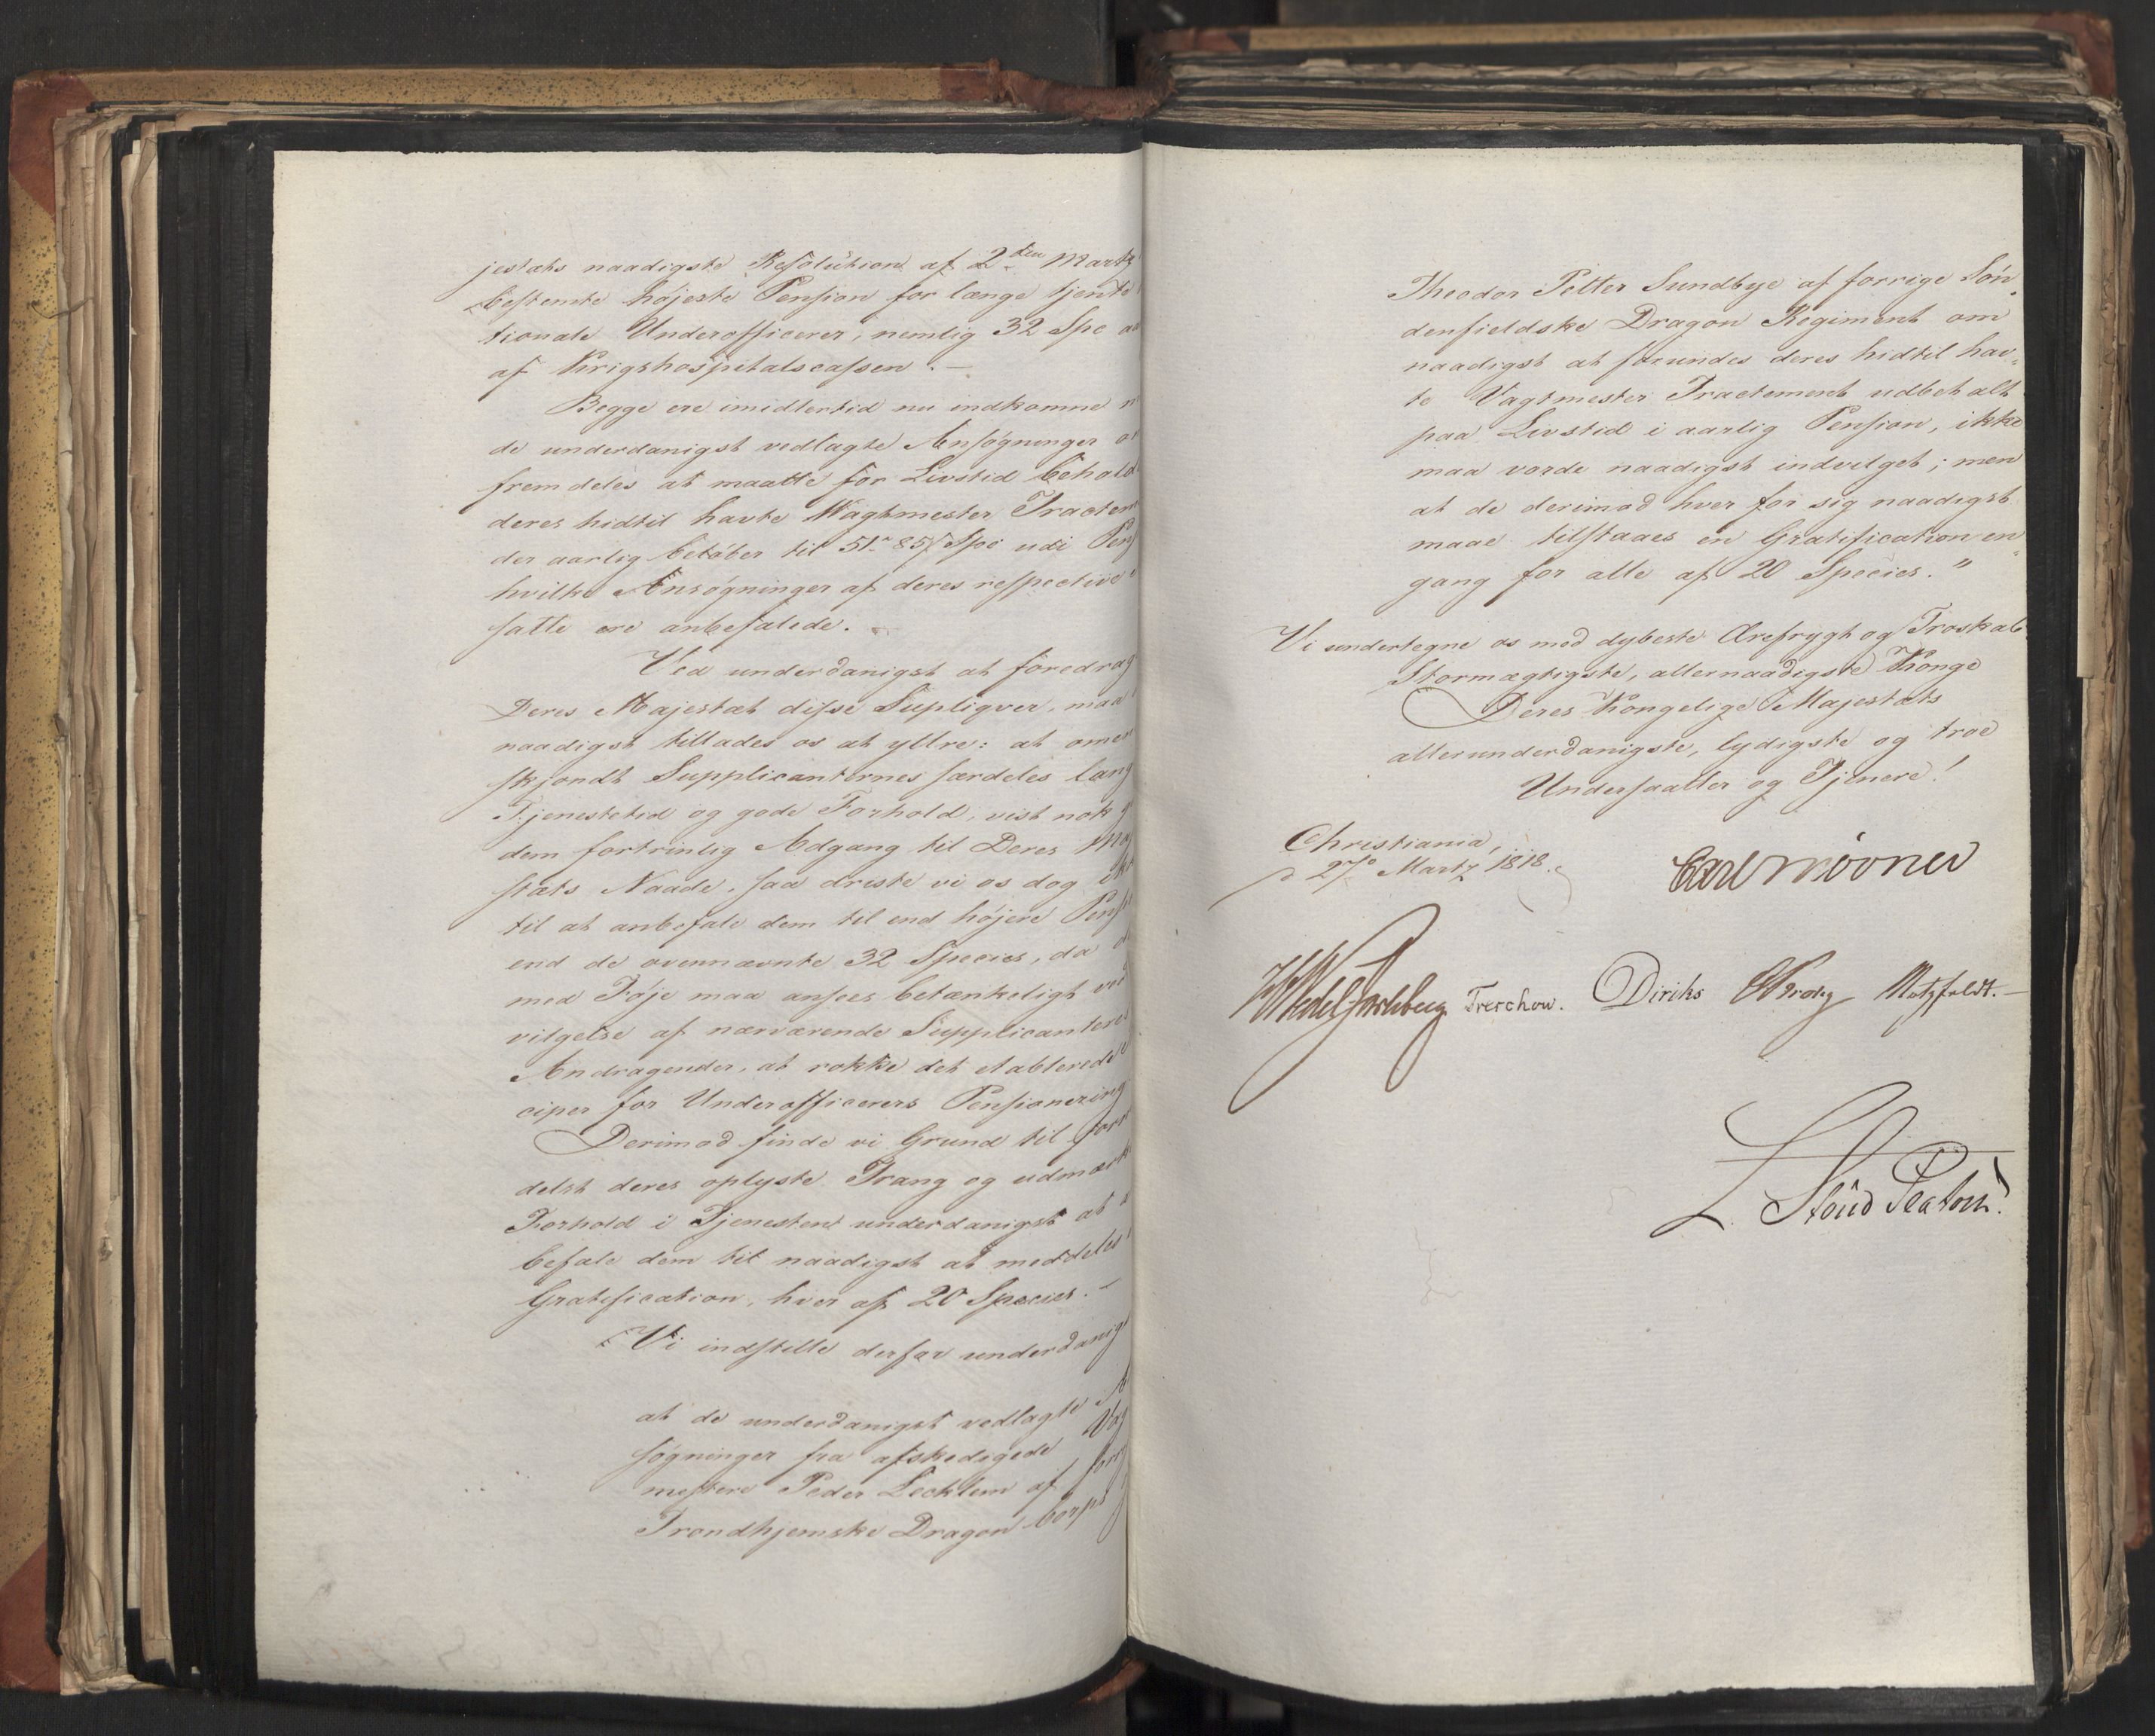 jestæts naadigste Resolution af 2den Martz
bestemte højeste Pension for længe tjente
tionale Underofficerer, nemlig 32 Spe
af Krigshospitalscassen. –
Begge ere imidlertid nu indkomne
de underdanigst vedlagte Ansøgninger
fremdeles at maatte for Livstid behold
deres hidtil havte Wagtmester Tractem
der aarlig beløber til 51 85 Spe udi Pens
hvilke Ansøgninger af deres respective
satte ere anbefalede.
Ved underdanigst at foredrag
Deres Majestæt disse Supliqver, maa
naadigst tillades os at yttre: at
skjøndt Supplicanternes særdeles lang
Tjenestetid og gode Forhold, vist nok
dem fortrinlig Adgang til Deres Maj
stæts Naade, saa driste vi os dog ikke
til at anbefale dem til end højere Pens
end de ovennævnte 32 Species, da
med Føje maa ansees betænkeligt ved
vilgelse af nærværende Supplicanters
Andragender, at rokke det etablerede
ciper for Underofficerers Pensionering
Derimod finde vi Grund til
delst deres oplyste Trang og udmærk
Forhold i Tjenesten underdanigst at
befale dem til naadigst at meddeles
Gratification, hver af 20 Species. –
Vi indstille derfor underdanigst
at de underdanigst vedlagte
søgninger fra afskedigede Vag
mestere Peder Lecklem af forr
Trondhjemske Dragon Corps
Theodor Petter Sundbye af forrige Søn
denfieldske Dragon Regiment om
naadigst at forundes deres hidtil hav-
te Vagtmester Tractement udbetalt
paa Livstid i aarlig Pension, ikke
maa vorde naadigst indvilget; men
at de derimod hver for sig naadigst
maae tilstaaes en Gratification en
gang for alle af 20 Species."
Vi undertegne os med dybeste Ærefrygt og Troskab
Stormægtigste, allernaadigste Konge
Deres Kongelige Majestæts
allerunderdanigste, lydigste og troe
Undersaatter og Tjenere!
Christiania,
d 27 Martz 1818.
Carl Mörner
HWedelJarlsberg Treschow. Diriks CKrog Motzfeldt. –
L. Stoud Platou